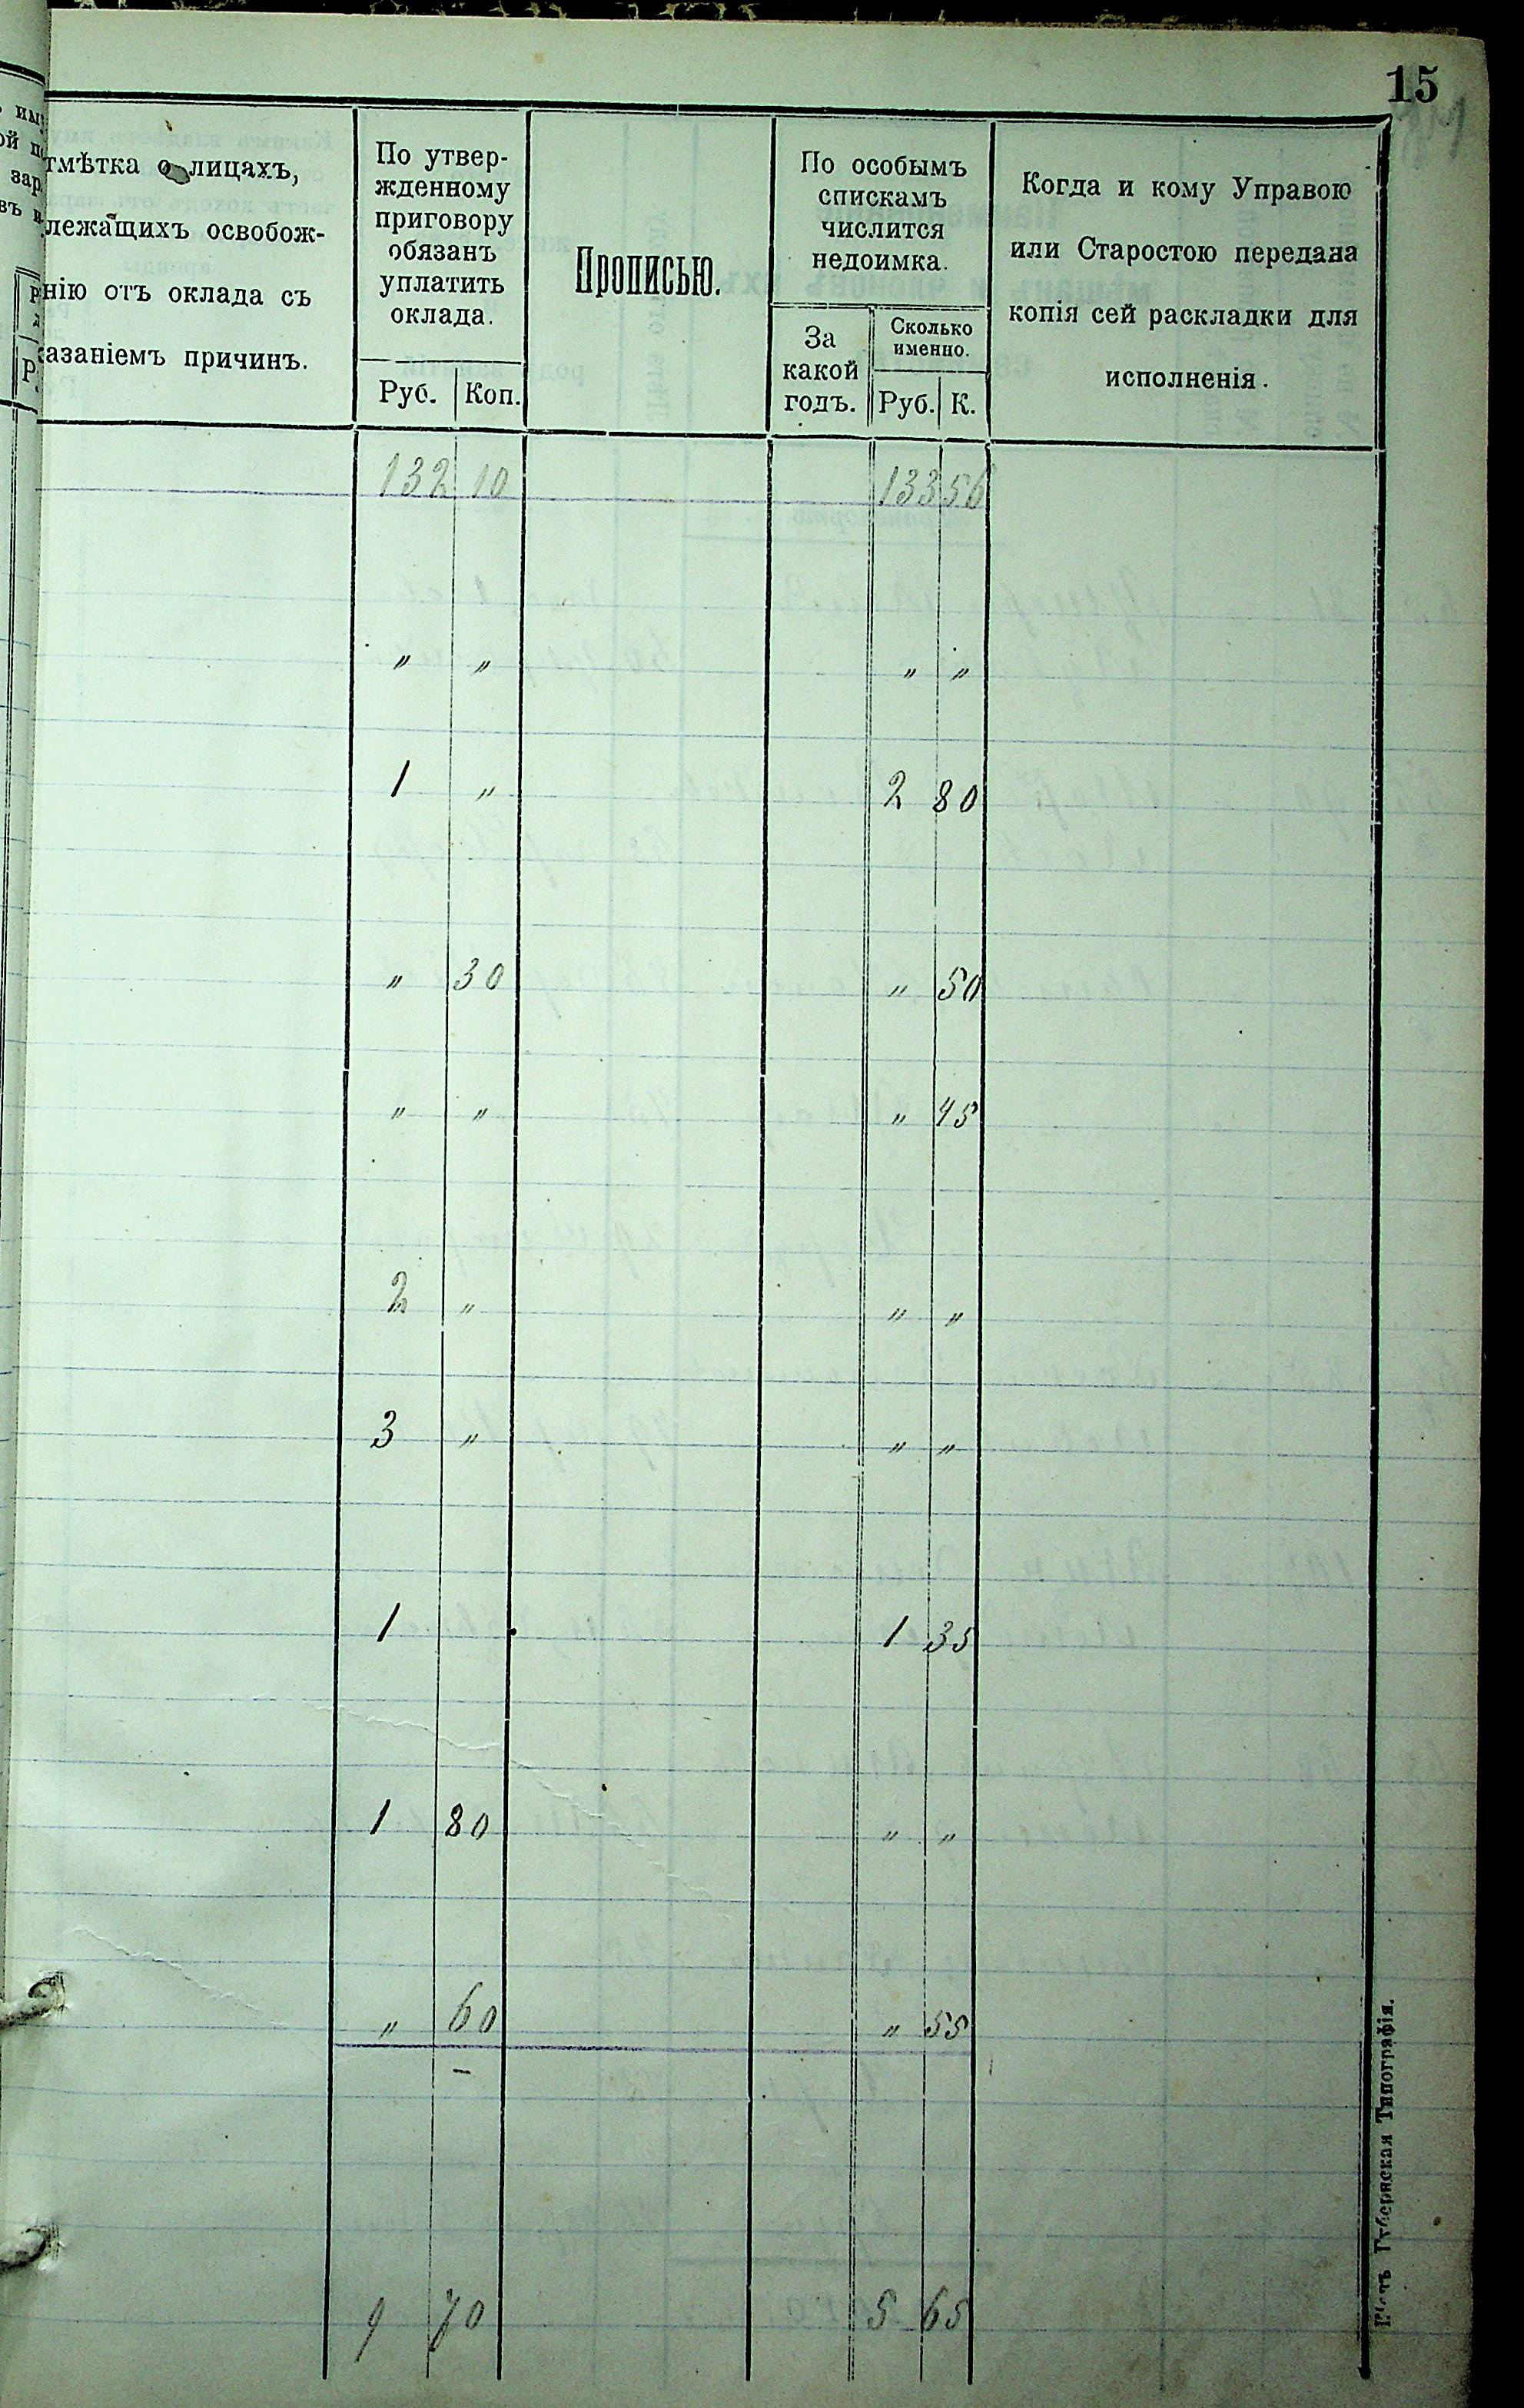 15
тмѣтка о лицахъ,
лежащихъ освобож-
нію отъ оклада съ
азаніемъ причинъ.
По утвер-
жденному
приговору
обязанъ
уплатить
оклада.
Руб. Коп.
Прописью.
По особымъ
спискамъ
числится
недоимка.
За
какой
годъ.
Сколько
именно.
Руб. К.
Когда и кому Управою
или Старостою передана
копія сей раскладки для
исполненія.
132 10 133 56
" " " "
1 " 2 80
" 30 " 50
" " " 45
2 " " "
3 " " "
1 1 35
1 80 " "
" 60 " 55
9 70 5 65
Губернская Типографія.